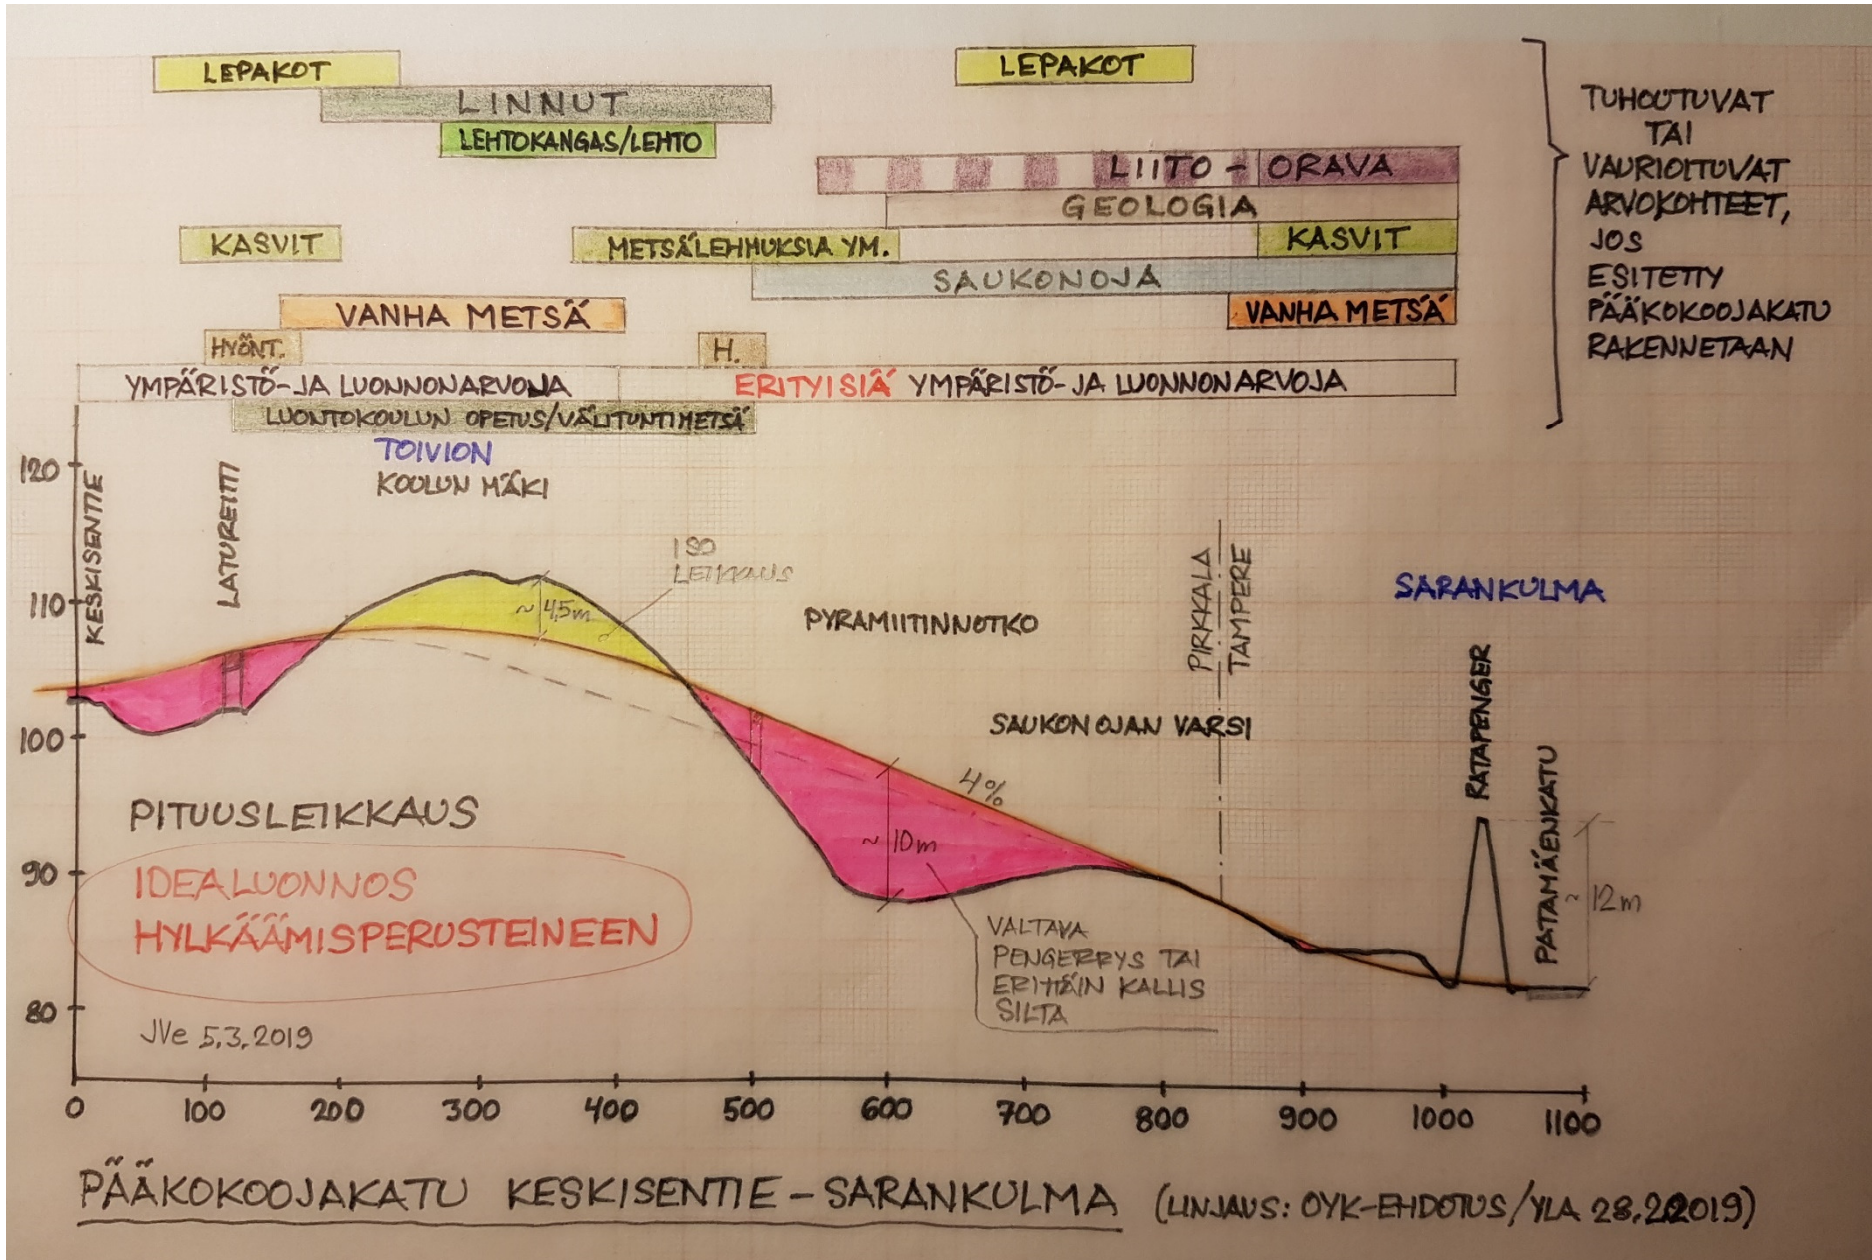 LEPAKOT
LEPAKOT
LINNUT
LEHTOKANGAS/LEHTO
LIITO-ORAVA
GEOLOGIA
KASVIT
METSÄLEHMUKSIA YM.
KASVIT
SAUKONOJA
VANHA METSÄ
VANHA METSÄ
HYÖNT.
H.
YMPÄRISTÖ-JA LUONNONARVOJA
ERITYISIÄ YMPÄRISTÖ-JA LUONNONARVOJA
LUONTOKOULUN OPETUS/VÄLITUNTIMETSÄ
TUHOUTUVAT
TAI
VAURIOITUVAT
ARVOKOHTEET,
JOS
ESITETTY
PÄÄKOKOOJAKATU
RAKENNETAAN
TOIVION
KOULUN MÄKI
120
110
100
90
80
KESKISENTIE
LATUREITTI
ISO
LEIKKAUS
~4,5m
PYRAMIITINNOTKO
PIRKKALA
TAMPERE
SARANKULMA
SAUKONOJAN VARSI
4%
RATAPENGER
PATAMÄENKATU
~12m
~10m
PITUUSLEIKKAUS
IDEALUONNOS
HYLKÄÄMISPERUSTEINEEN
VALTAVA
PENGERRYS TAI
ERITTÄIN KALLIS
SILTA
JVe 5.3.2019
0 100 200 300 400 500 600 700 800 900 1000 1100
PÄÄKOKOOJAKATU KESKISENTIE-SARANKULMA (LINJAUS: OYK-EHDOTUS/YLA 28.2.2019)